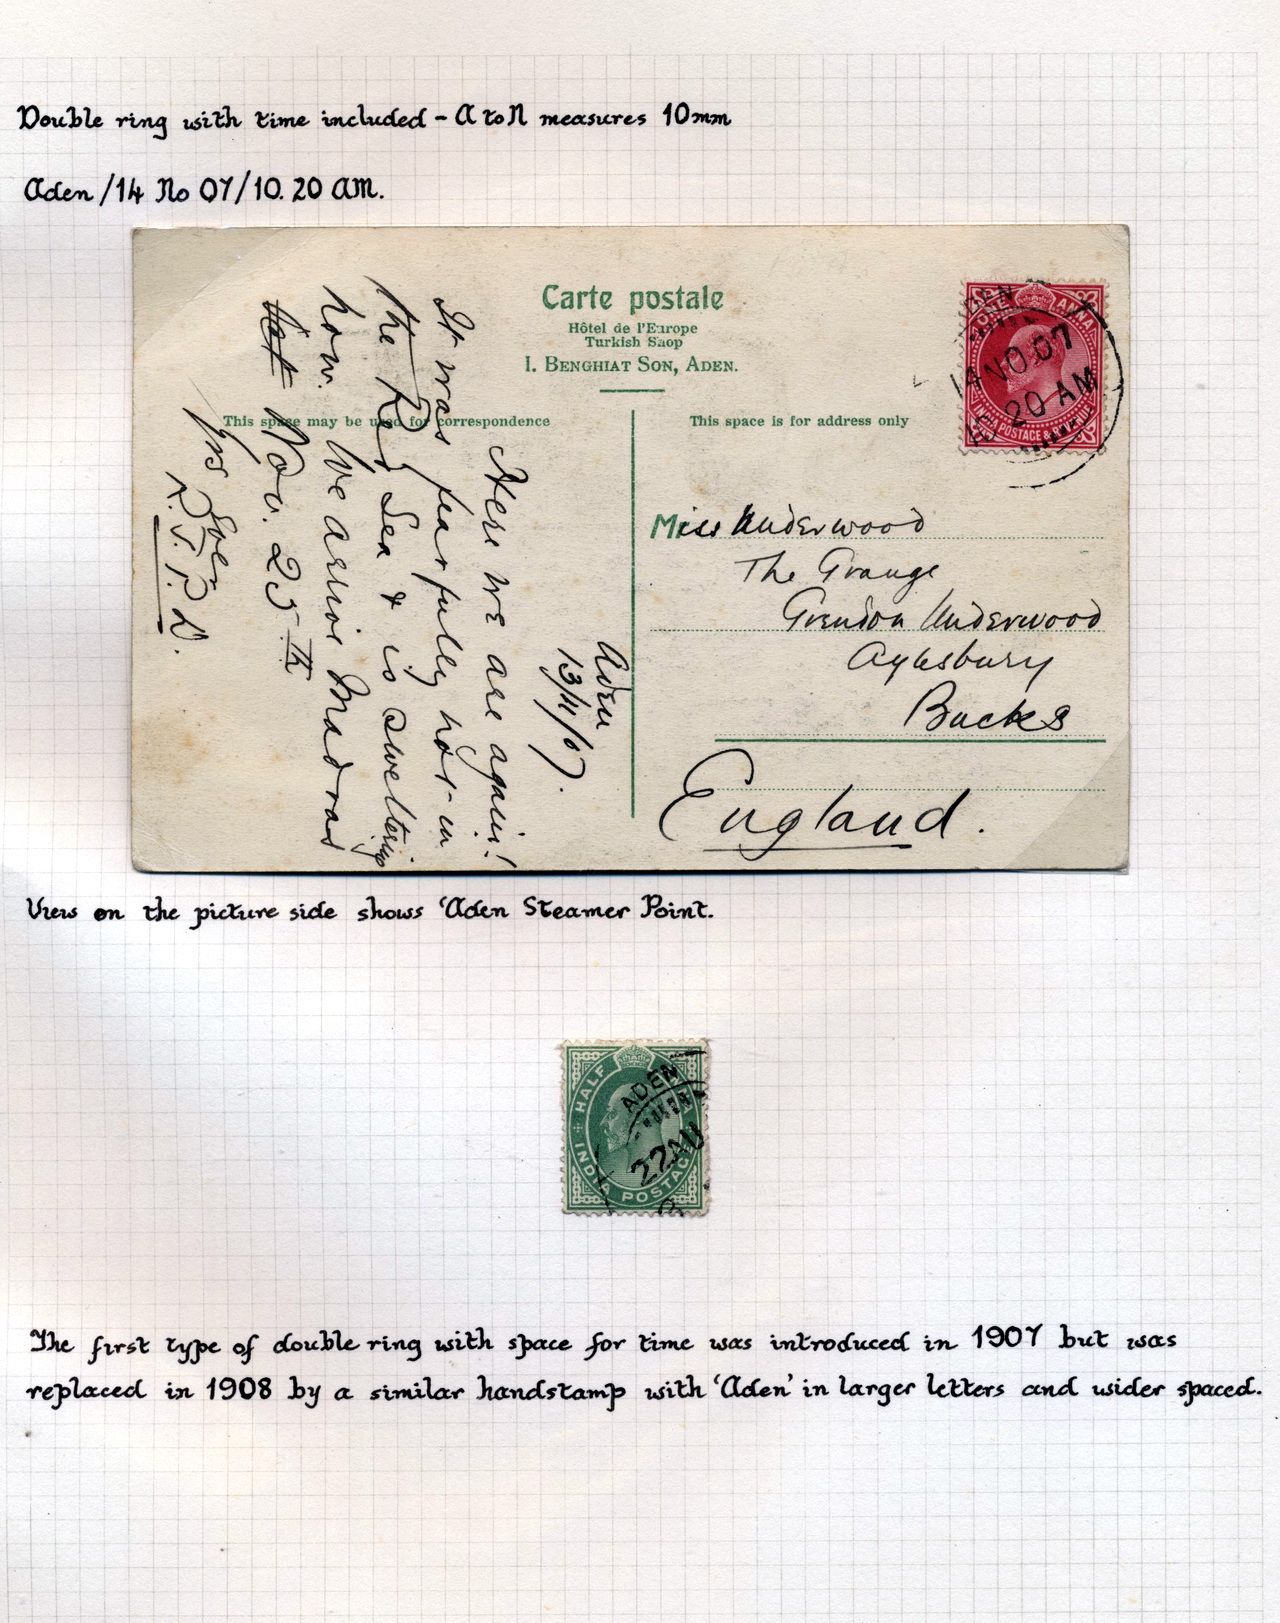 Double ring with time included - A to N measures 10mm
Aden /14 No 07/10.20 AM.
Carte postale
Hôtel de l'Europe
Turkish Shop
I. BENGHIAT SON, ADEN.
This space may be used for correspondence
This space is for address only
ONE ANNA
INDIA POSTAGE & REVENUE
ADEN
14 NO.07
10 20 AM
Aden
13/11/07.
Here we are again!
It was fearfully hot in
the Red Sea & is sweltering
now. We arrive Madras
Nov. 25th
Yrs Ever
Miss Underwood
The Grange
Grendon Underwood
Aylesbury
Bucks
England.
View on the picture side shows 'Aden Steamer Point.
HALF
INDIA POSTAGE
ADEN
22 AU
The first type of double ring with space for time was introduced in 1907 but was
replaced in 1908 by a similar handstamp with 'Aden' in larger letters and wider spaced.